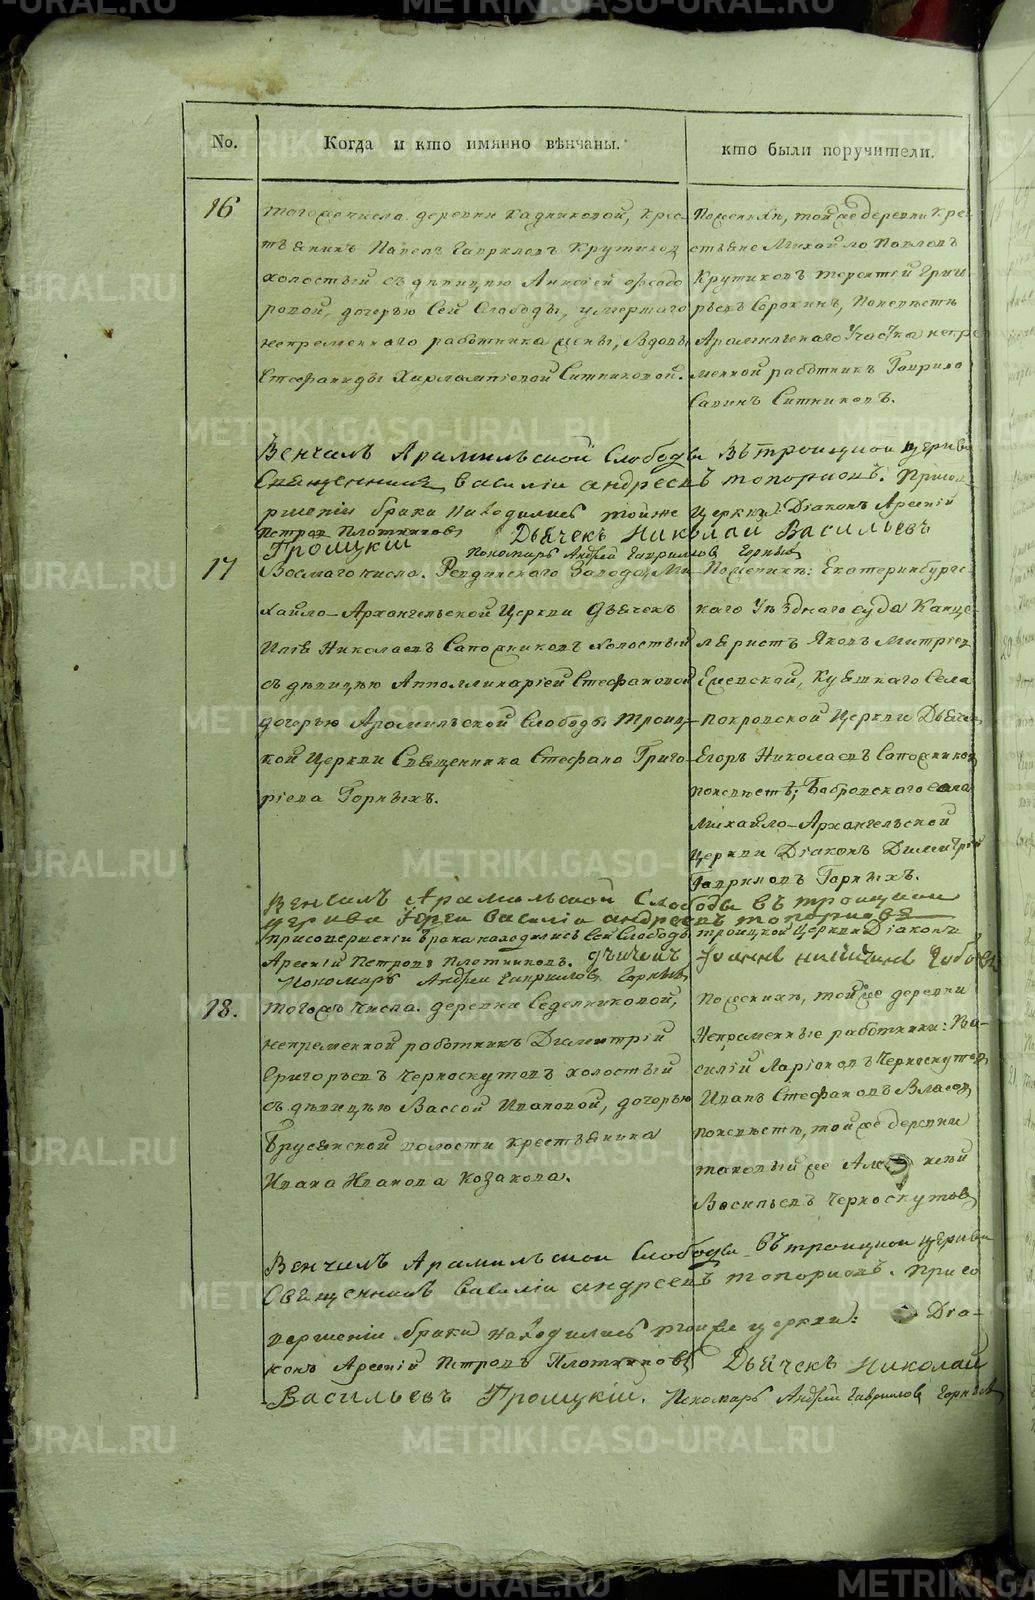 No.
Когда и кто имянно вѣнчаны.
кто были поручители.
16
тогоже числа деревни Кадниковой, крес-
тьянинъ Павелъ Гавриловъ Крутиковъ
холостый съ дѣвицею Анисіей Ѳеодо
ровой, дочерью сей Слободы, умершаго
непременнаго работника жены, вдовы
Стефаниды Харлампіовой Ситниковой.
По женихѣ, той же деревни крес
стьяне Михайло Павловъ
Крутиковъ Терентій Григ
рьевъ Сорокинъ, По невѣстѣ
Арамильскаго Участка непре
менной работникъ Гаврило
Савинъ Ситниковъ.
Венчалъ Арамильской Слободы въ троицкои церкви
Священникъ василіи андреевъ топорковъ. При сов
ершеніи брака Находились тойже церкви: Діаконъ Арсеній
Петровъ Плотниковъ Дьячекъ Николай Васильевъ
Троицкій Пономарь Андрей Гавриловъ Горныхъ
17
Восмаго числа. Ревдинскаго Завода Ми-
хайло-Архангельской Церкви Дьячекъ
Илья Николаевъ Сапожниковъ холостый
съ дѣвицею Апполлинаріей Стефановой
дочерью Арамильской Слободы троиц-
кой Церкви Священника Стефана Григо
ріева Горныхъ.
По женихѣ: Екатеринбургс-
каго Уѣзднаго суда Канце
ляристъ Яковъ Митріевъ
Кушкаго Села
Покровской Церкви Дьячек
Егоръ Николаевъ Сапожников
по невѣстѣ; Бобровскаго села
Михайло-Архангельской
Церкви Діаконъ Димитрій
Гавриловъ Горныхъ.
Венчалъ Арамильской Слободы въ троицкои
церкви Іереи василіи андреевъ топорковъ
При совершеніи брака находились Сей Слободы троицкой Церкви Діаконъ
Арсеній Петровъ Плотниковъ.
Пономарь Андрей Гавриловъ Горныхъ
18.
Тогожъ числа. деревни Седельниковой,
непременной работникъ Димитрій
Григорьевъ Черноскутовъ холостый
съ дѣвицею Вассой Ивановой, дочерью
Брусянской волости крестьянина
Ивана Иванова Козакова.
По женихѣ, той же деревни
Непременные работники: Ва-
силій Ларіоновъ Черноскутов,
Иванъ Стефановъ Власов,
по невѣстѣ, той же деревни
таковый же Алексѣй
Васильевъ Черноскутов
Венчалъ Арамильскои Слободы въ троицкои церкви
Священникъ василіи андреевъ топорковъ. При со
вершеніи брака находились тойже церкви: Діа-
конъ Арсеній Петровъ Плотниковъ Дьячекъ Николай
Васильевъ Троицкій. Пономарь Андрей Гавриловъ Горныхъ
METRIKI.GASO-URAL.RU